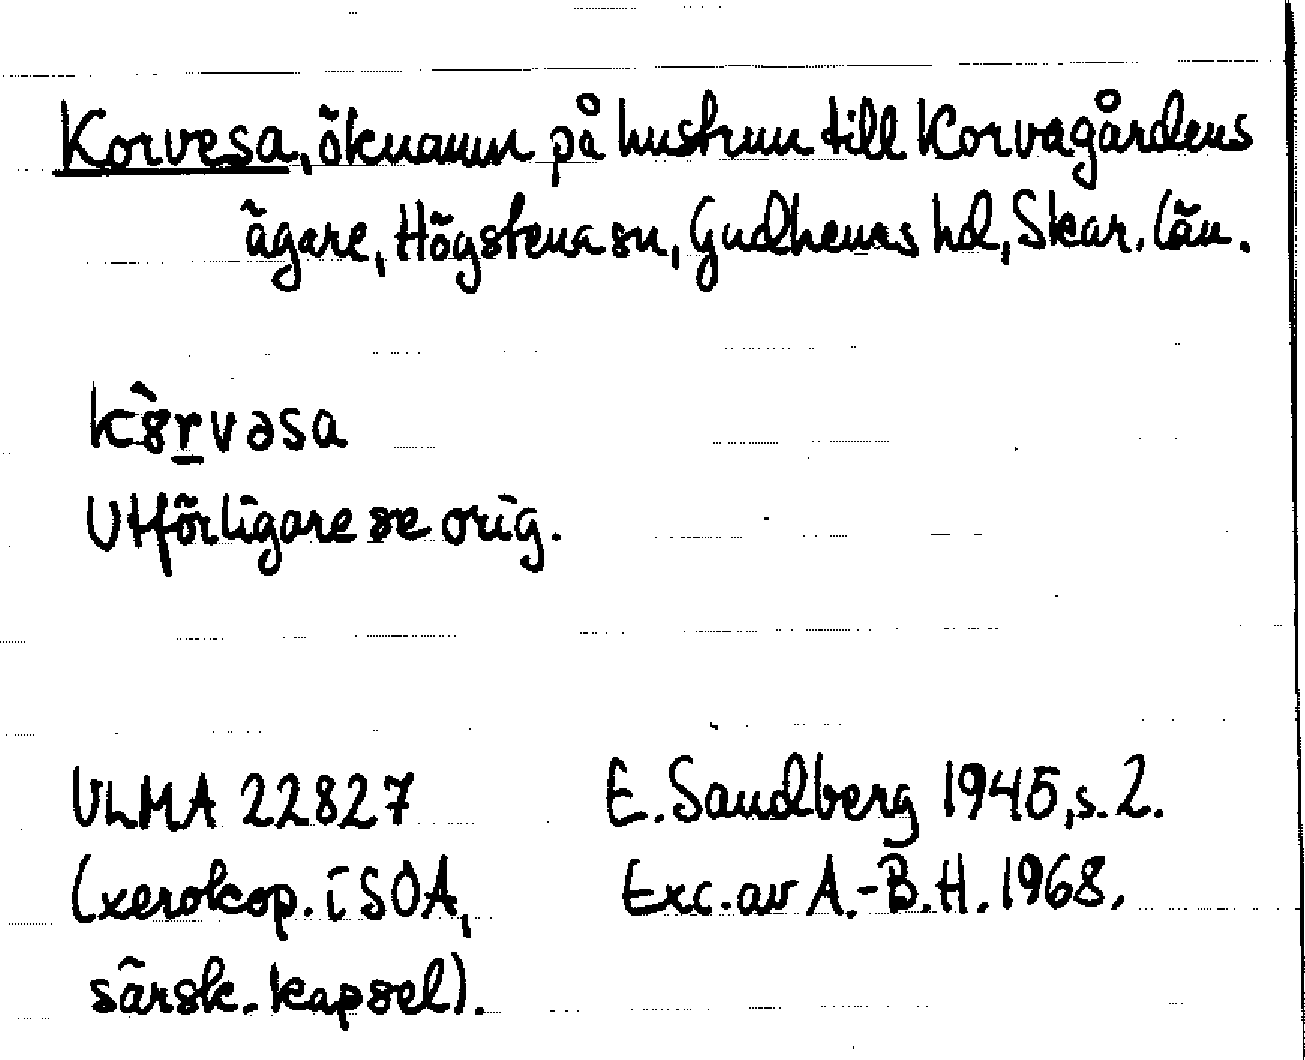 Korvesa, öknamn på hustrun till Korvagårdens
ägare, Högstena sn, Gudhems hd, Skar. län.
k8̀r̲vəsa
Utförligare se orig.
ULMA 22827
(xerokop. i SOA,
särsk. kapsel).
E. Sandberg 1945, s. 2.
Exc. av A.-B.H. 1968.